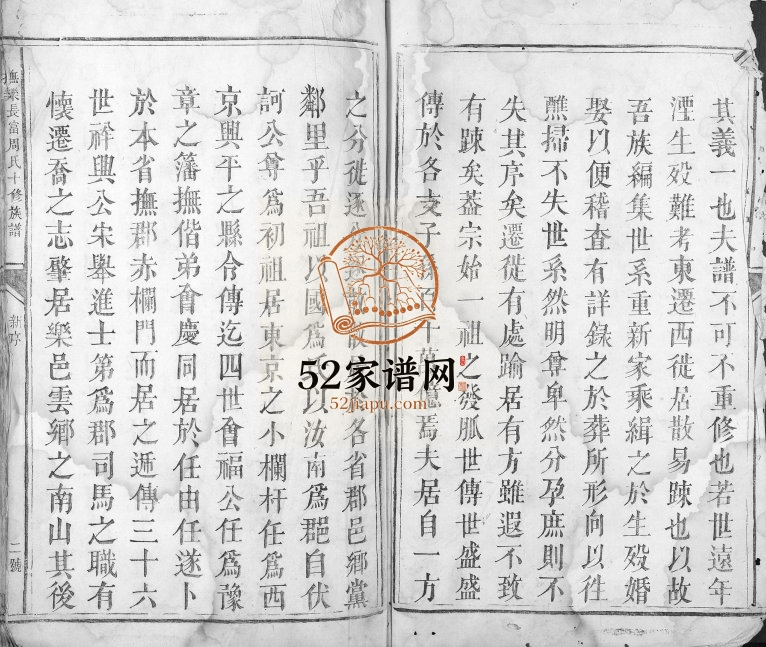 其義一也夫譜不可不重修也若世遠年
湮生殁難考東遷西徙居散易踈也以故
吾族編集世系重新家乘緝之於生殁婚
娶以便稽查有詳錄之於葬所形向以徃
醮掃不失世系然明尊卑然分孕庶則不
失其序矣遷徙有處踰居有方雖遐不致
有踈矣葢宗始一祖之發胍世傳世盛盛
傳於各支子百十萬億焉夫居自一方
之分徙逐各省郡邑鄉黨
鄰里乎吾祖以國爲氏以汝南爲郡自伏
訶公尊爲初祖居東京之小欄杆任爲西
京興平之縣令傳迄四世會福公任爲豫
章之藩撫偕弟會慶同居於任由任遂卜
於本省撫郡赤欄門而居之遞傳三十六
世祥興公宋舉進士第爲郡司馬之職有
懷遷喬之志肇居樂邑雲鄉之南山其後
撫樂長富周氏十修族譜
新序
二號
52家谱网
52jiapu.com